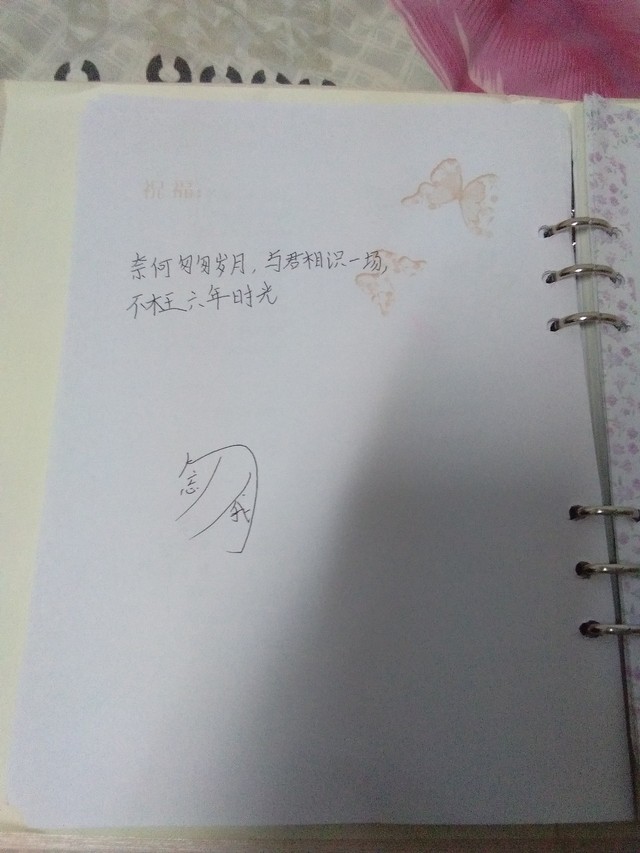 祝福:
奈何匆匆岁月,与君相识一场,
不枉六年时光
勿忘我